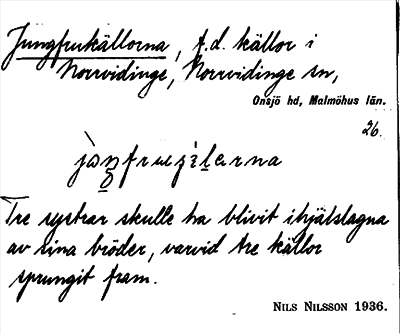 Jungfrukällorna, f.d. källor i
Norrvidinge, Norrvidinge sn,
Onsjö hd, Malmöhus län.
26.
Tre systrar skulle ha blivit ihjälslagna
av sina bröder, varvid tre källor
sprungit fram.
NILS NILSSON 1936.